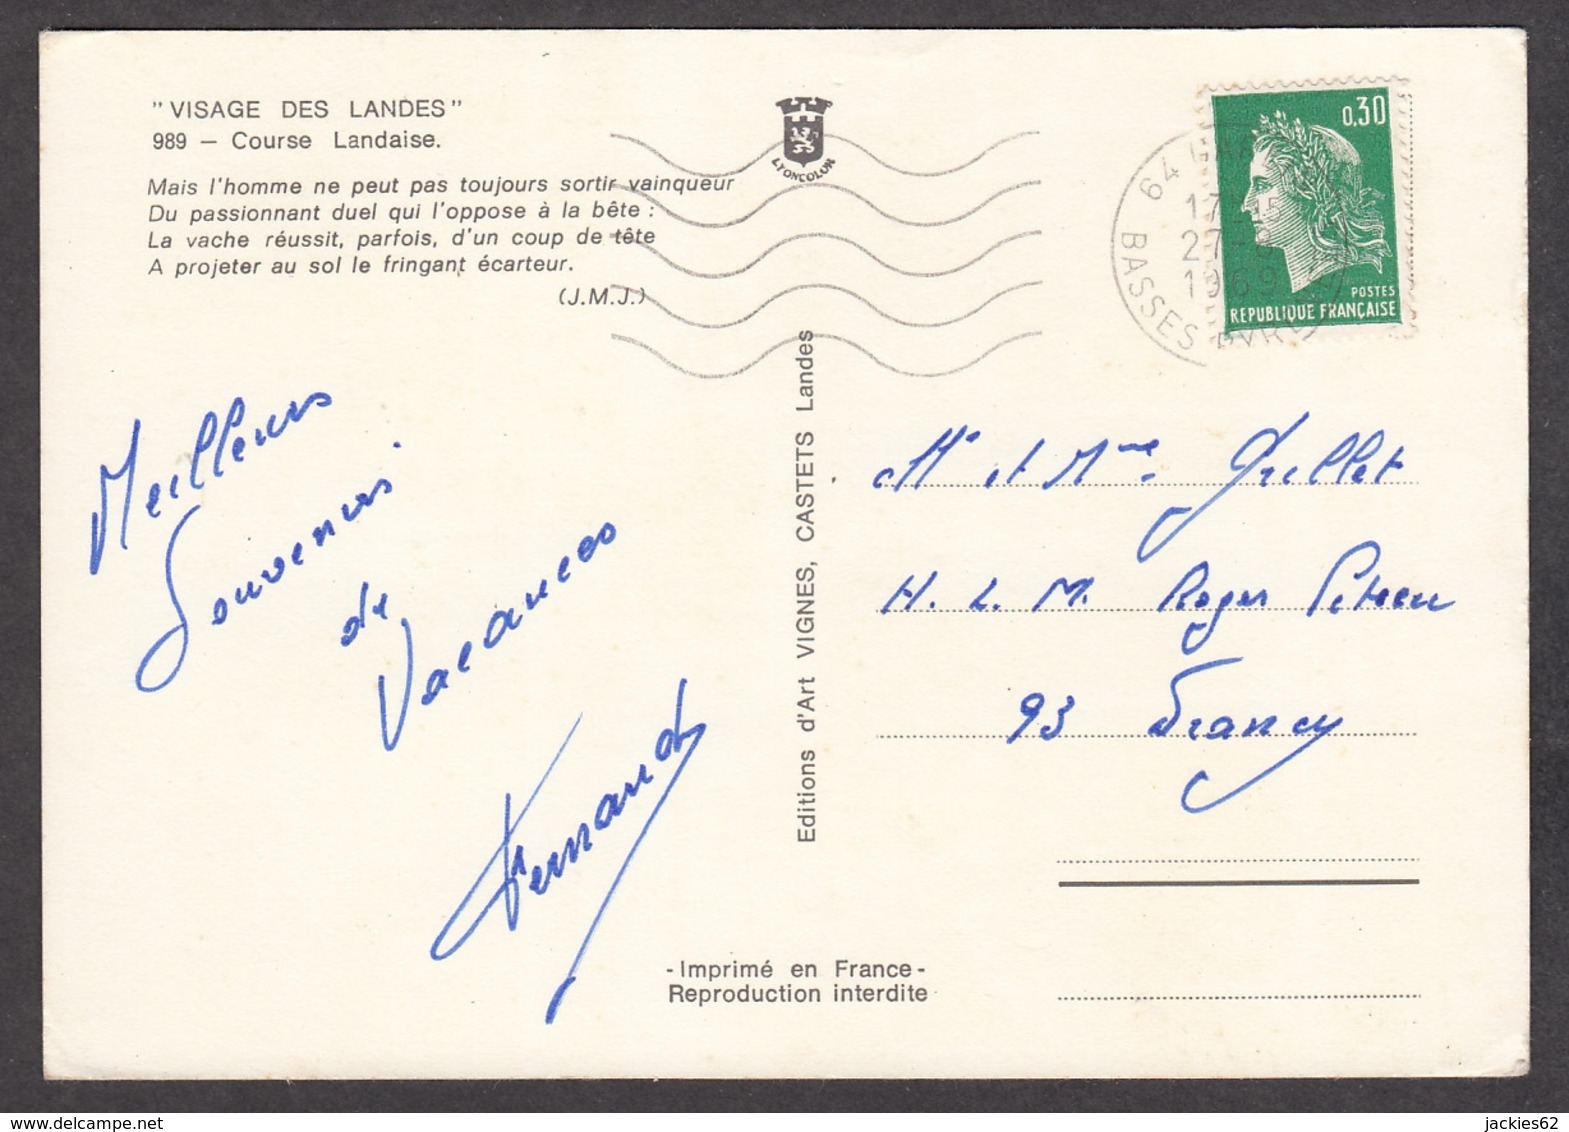 " VISAGE DES LANDES "
989 — Course Landaise.
Mais l'homme ne peut pas toujours sortir vainqueur
Du passionnant duel qui l'oppose à la bête :
La vache réussit, parfois, d'un coup de tête
A projeter au sol le fringant écarteur.
(J.M.J.)
LYONCOLOR
0,30
POSTES
REPUBLIQUE FRANÇAISE
64
17-15
27-8
1969
BASSES PYR
Meilleurs
Souvenirs
de
Vacances
Fernand
Editions d'Art VIGNES, CASTETS Landes
Mr et Mme Grillet
H. L. M. Roger
93 Drancy
- Imprimé en France -
Reproduction interdite
jackies62